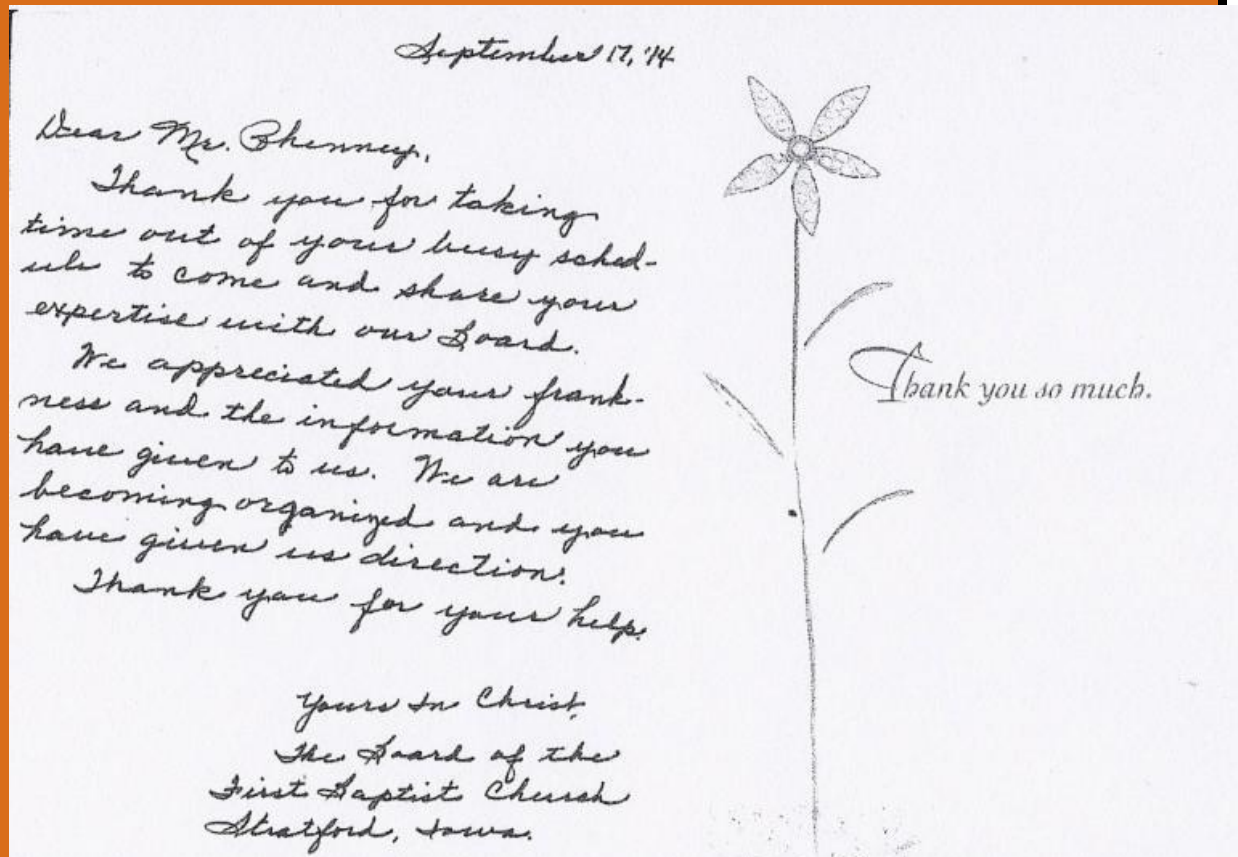 September 17, '14
Dear Mr. Phenney,
Thank you for taking
time out of your busy sched-
ule to come and share your
expertise with our Board.
We appreciated your frank-
ness and the information you
have given to us. We are
becoming organized and you
have given us direction.
Thank you for your help.
Yours In Christ,
The Board of the
First Baptist Church
Stratford, Iowa.
Thank you so much.